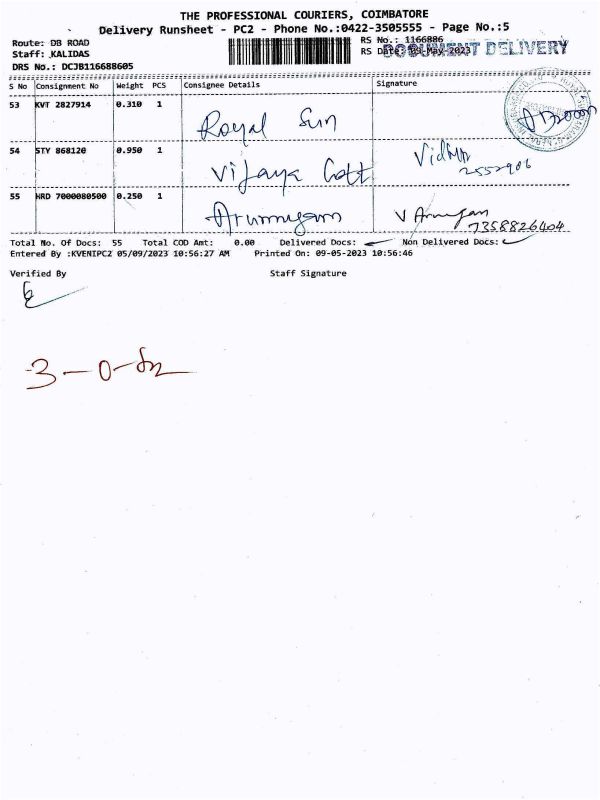 THE PROFESSIONAL COURIERS, COIMBATORE
Delivery Runsheet - PC2 - Phone No.:0422-3505555 - Page No.:5
Route: DB ROAD
Staff: KALIDAS
DRS No.: DCJB116688605
RS No.: 1166886
RS Date: 09-May-2023
DOCUMENT DELIVERY
S No Consignment No Weight PCS Consignee Details Signature
53 KVT 2827914 0.310 1 Royal Sun
54 STY 868120 0.950 1 Vijaya Cott Vidhya 2552906
55 HRD 7000080500 0.250 1 Arumugam V Arumugam
7358826404
Total No. Of Docs: 55 Total COD Amt: 0.00 Delivered Docs: Non Delivered Docs:
Entered By :KVENIPC2 05/09/2023 10:56:27 AM Printed On: 09-05-2023 10:56:46
Verified By Staff Signature